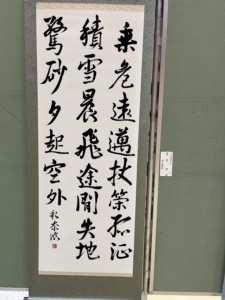 乗危遠邁杖策孤征
積雪晨飛途間失地
驚砂夕起空外